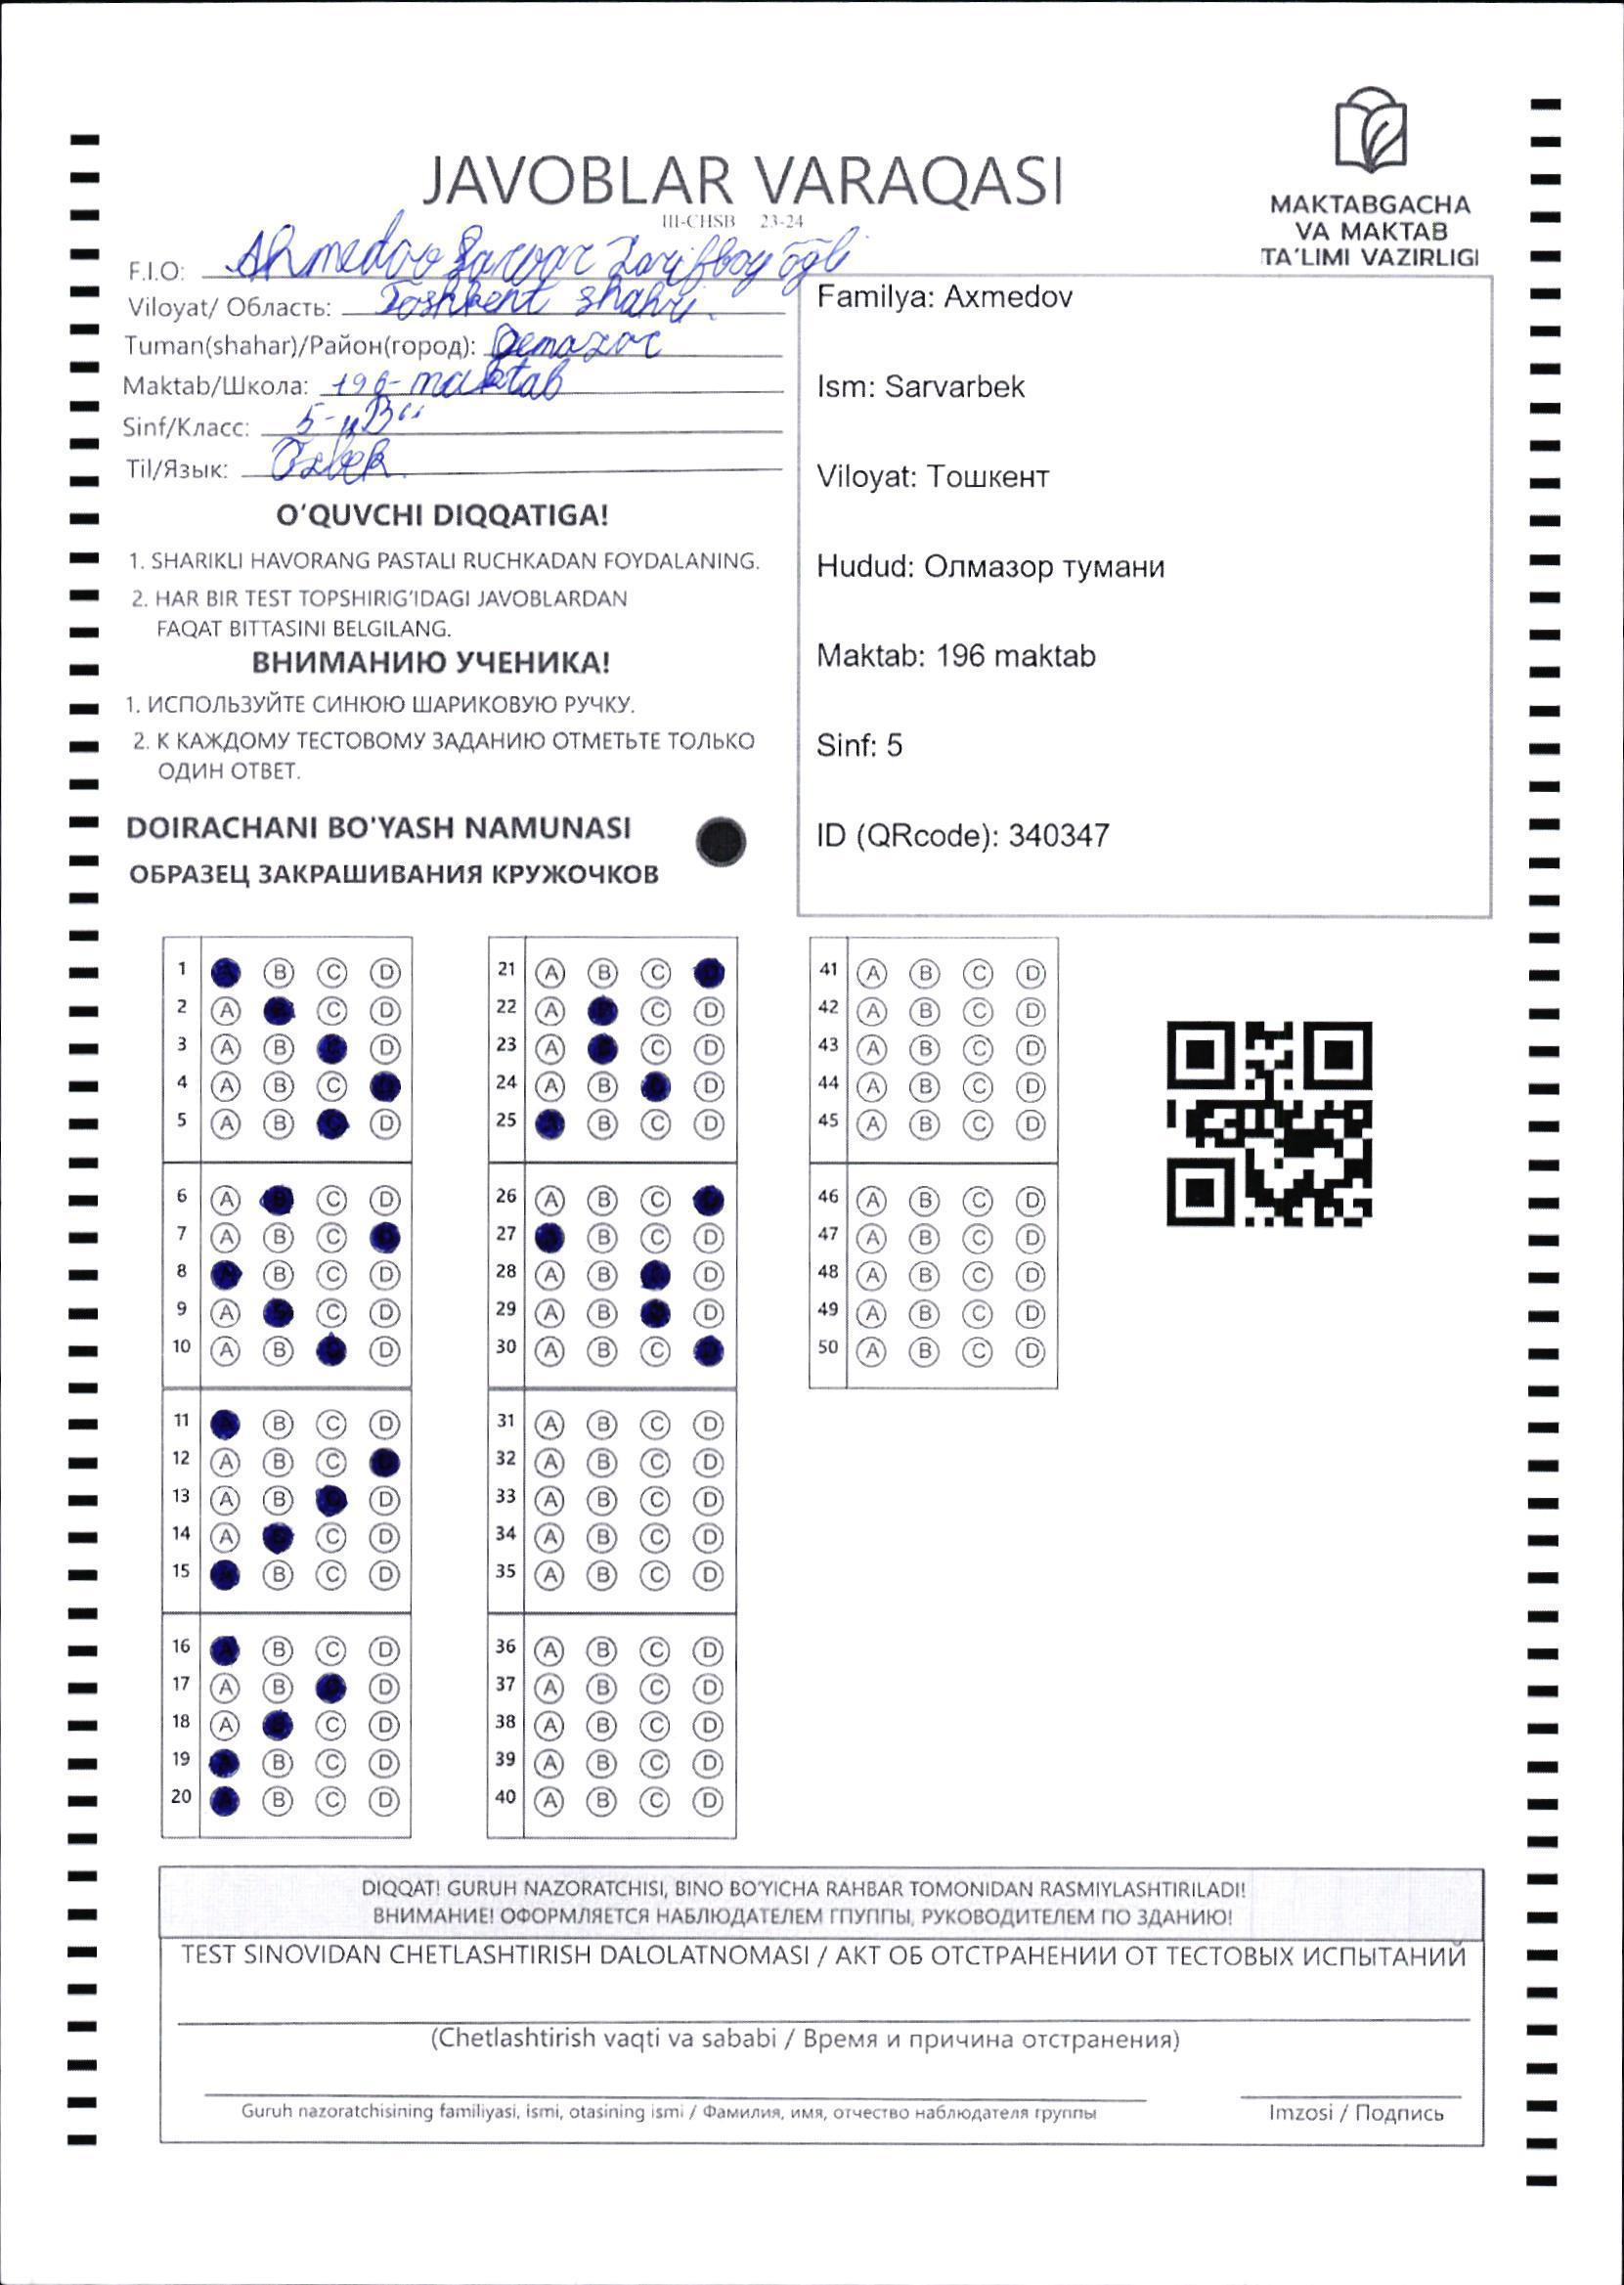 JAVOBLAR VARAQASI
III-CHSB 23-24
MAKTABGACHA
VA MAKTAB
TA'LIMI VAZIRLIGI
F.I.O: Ahmedov Sarvar Zarifboy õgli
Viloyat/ Область: Toshkent shahri.
Tuman(shahar)/Район(город): Olmazor
Maktab/Школа: 196-maktab
Sinf/Класс: 5-„B“
Til/Язык: Ozbek.
Familya: Axmedov
Ism: Sarvarbek
Viloyat: Тошкент
Hudud: Олмазор тумани
Maktab: 196 maktab
Sinf: 5
ID (QRcode): 340347
O'QUVCHI DIQQATIGA!
1. SHARIKLI HAVORANG PASTALI RUCHKADAN FOYDALANING.
2. HAR BIR TEST TOPSHIRIG'IDAGI JAVOBLARDAN
FAQAT BITTASINI BELGILANG.
ВНИМАНИЮ УЧЕНИКА!
1. ИСПОЛЬЗУЙТЕ СИНЮЮ ШАРИКОВУЮ РУЧКУ.
2. К КАЖДОМУ ТЕСТОВОМУ ЗАДАНИЮ ОТМЕТЬТЕ ТОЛЬКО
ОДИН ОТВЕТ.
DOIRACHANI BO'YASH NAMUNASI
ОБРАЗЕЦ ЗАКРАШИВАНИЯ КРУЖОЧКОВ
1 B C D
2 A C D
3 A B D
4 A B C
5 A B D
6 A C D
7 A B C
8 B C D
9 A C D
10 A B D
11 B C D
12 A B C
13 A B D
14 A C D
15 B C D
16 B C D
17 A B D
18 A C D
19 B C D
20 B C D
21 A B C
22 A C D
23 A C D
24 A B D
25 B C D
26 A B C
27 B C D
28 A B D
29 A B D
30 A B C
31 A B C D
32 A B C D
33 A B C D
34 A B C D
35 A B C D
36 A B C D
37 A B C D
38 A B C D
39 A B C D
40 A B C D
41 A B C D
42 A B C D
43 A B C D
44 A B C D
45 A B C D
46 A B C D
47 A B C D
48 A B C D
49 A B C D
50 A B C D
DIQQAT! GURUH NAZORATCHISI, BINO BO'YICHA RAHBAR TOMONIDAN RASMIYLASHTIRILADI!
ВНИМАНИЕ! ОФОРМЛЯЕТСЯ НАБЛЮДАТЕЛЕМ ГПУППЫ, РУКОВОДИТЕЛЕМ ПО ЗДАНИЮ!
TEST SINOVIDAN CHETLASHTIRISH DALOLATNOMASI / АКТ ОБ ОТСТРАНЕНИИ ОТ ТЕСТОВЫХ ИСПЫТАНИЙ
(Chetlashtirish vaqti va sababi / Время и причина отстранения)
Guruh nazoratchisining familiyasi, ismi, otasining ismi / Фамилия, имя, отчество наблюдателя группы
Imzosi / Подпись